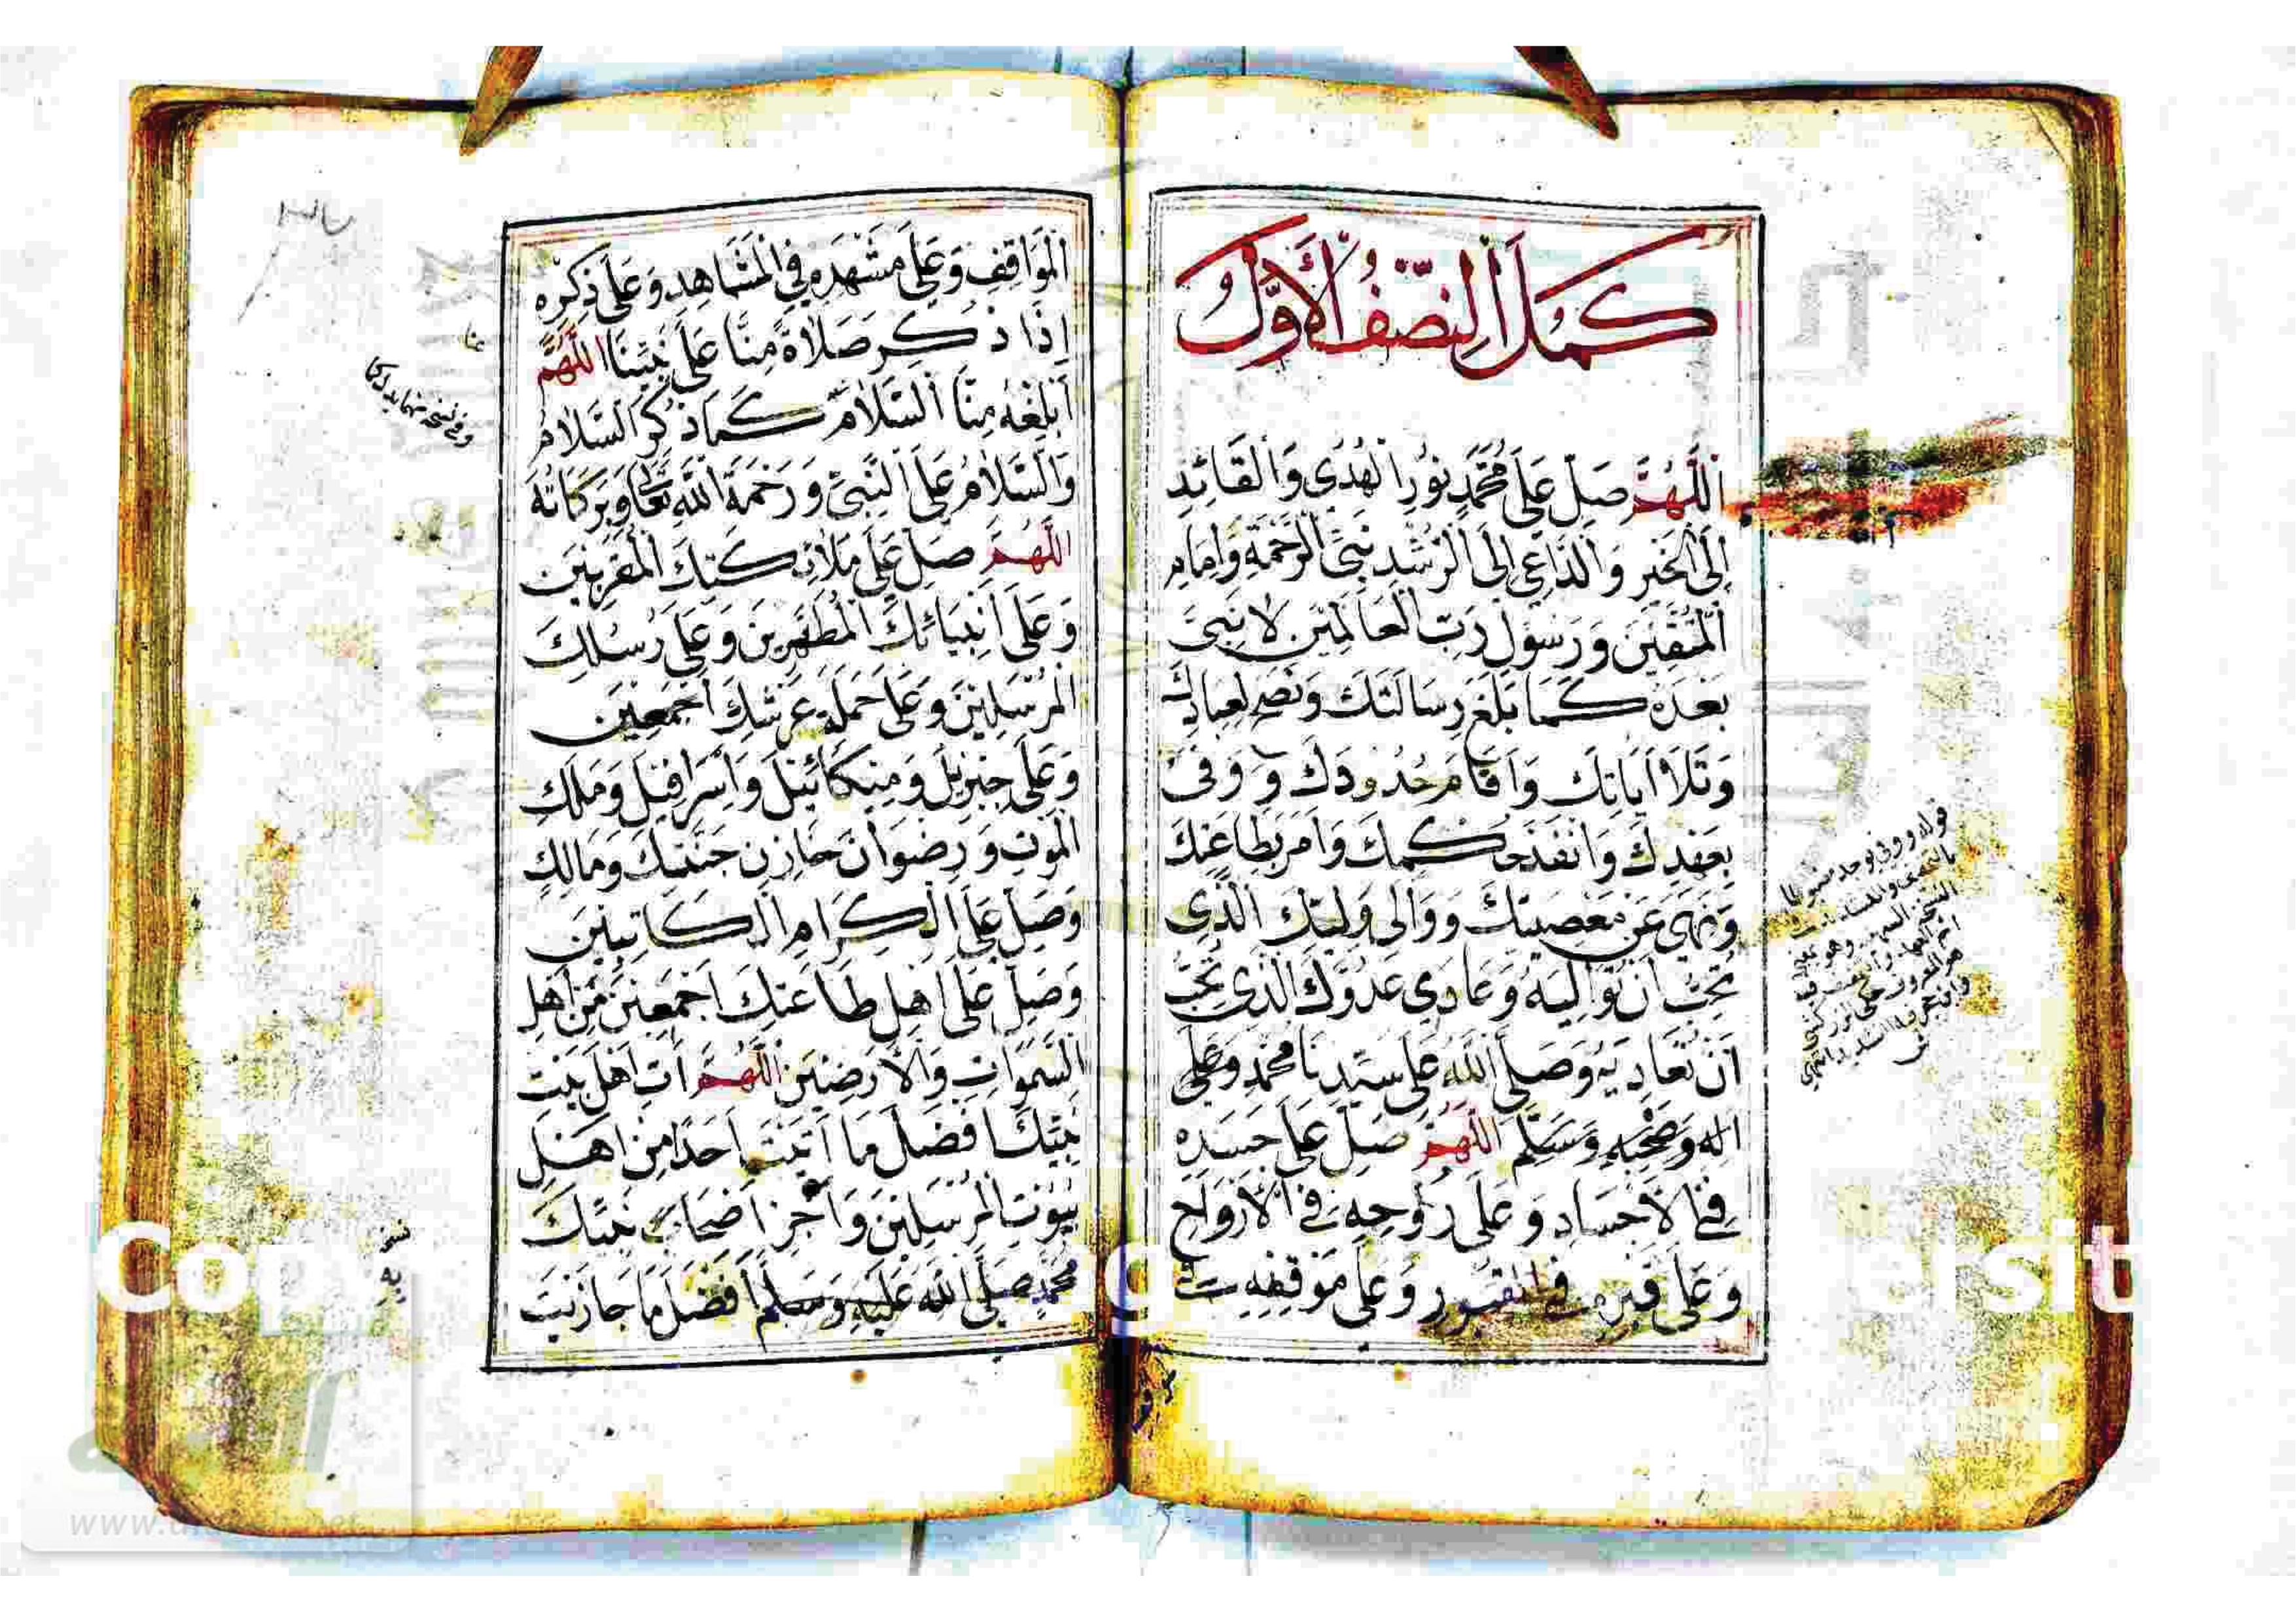 كَمُلَ النِّصْفُ الْأَوَّلُ
اَللّٰهُمَّ صَلِّ عَلَى مُحَمَّدٍ نُورِ الْهُدٰى وَالْقَائِدِ
إِلَى الْخَيْرِ وَالدَّاعِي إِلَى الرُّشْدِ نَبِيِّ الرَّحْمَةِ وَإِمَامِ
الْمُتَّقِينَ وَرَسُولِ رَبِّ الْعَالَمِينَ لَا نَبِيَّ
بَعْدَهُ كَمَا بَلَّغَ رِسَالَتَكَ وَنَصَحَ لِعِبَادِكَ
وَتَلَا اٰيَاتِكَ وَأَقَامَ حُدُودَكَ وَوَفَّى
بِعَهْدِكَ وَأَنْفَذَ حُكْمَكَ وَأَمَرَ بِطَاعَتِكَ
وَنَهَى عَنْ مَعْصِيَتِكَ وَوَالَى وَلِيَّكَ الَّذِي
تُحِبُّ أَنْ تُوَالِيَهُ وَعَادَى عَدُوَّكَ الَّذِي تُحِبُّ
أَنْ تُعَادِيَهُ وَصَلَّى اللّٰهُ عَلَى سَيِّدِنَا مُحَمَّدٍ وَعَلَى
اٰلِهِ وَصَحْبِهِ وَسَلَّمَ اَللّٰهُمَّ صَلِّ عَلَى جَسَدِهِ
فِي الْأَجْسَادِ وَعَلَى رُوحِهِ فِي الْأَرْوَاحِ
وَعَلَى قَبْرِهِ فِي الْقُبُورِ وَعَلَى مَوْقِفِهِ فِي
الْمَوَاقِفِ وَعَلَى مَشْهَدِهِ فِي الْمَشَاهِدِ وَعَلَى ذِكْرِهِ
إِذَا ذُكِرَ صَلَاةً مِنَّا عَلَى نَبِيِّنَا اَللّٰهُمَّ
أَبْلِغْهُ مِنَّا السَّلَامَ كَمَا ذُكِرَ السَّلَامُ
وَالسَّلَامُ عَلَى النَّبِيِّ وَرَحْمَةُ اللّٰهِ تَعَالَى وَبَرَكَاتُهُ
اَللّٰهُمَّ صَلِّ عَلَى مَلَائِكَتِكَ الْمُقَرَّبِينَ
وَعَلَى أَنْبِيَائِكَ الْمُطَهَّرِينَ وَعَلَى رُسُلِكَ
الْمُرْسَلِينَ وَعَلَى حَمَلَةِ عَرْشِكَ أَجْمَعِينَ
وَعَلَى جِبْرِيلَ وَمِيكَائِيلَ وَإِسْرَافِيلَ وَمَلَكِ
الْمَوْتِ وَرِضْوَانَ خَازِنِ جَنَّتِكَ وَمَالِكٍ
وَصَلِّ عَلَى الْكِرَامِ الْكَاتِبِينَ
وَصَلِّ عَلَى أَهْلِ طَاعَتِكَ أَجْمَعِينَ مِنْ أَهْلِ
السَّمٰوَاتِ وَالْأَرَضِينَ اَللّٰهُمَّ اٰتِ أَهْلَ بَيْتِ
نَبِيِّكَ أَفْضَلَ مَا اٰتَيْتَ أَحَدًا مِنْ أَهْلِ
بُيُوتِ الْمُرْسَلِينَ وَاجْزِ أَصْحَابَ نَبِيِّكَ
مُحَمَّدٍ صَلَّى اللّٰهُ عَلَيْهِ وَسَلَّمَ أَفْضَلَ مَا جَازَيْتَ